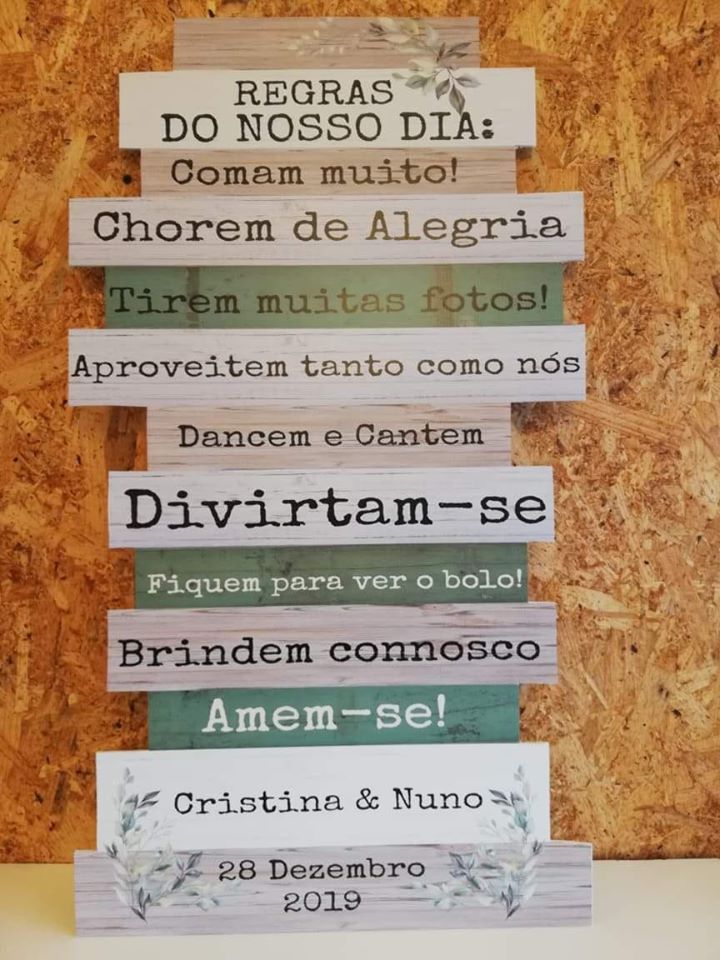 REGRAS
DO NOSSO DIA:
Comam muito!
Chorem de Alegria
Tirem muitas fotos!
Aproveitem tanto como nós
Dancem e Cantem
Divirtam-se
Fiquem para ver o bolo!
Brindem connosco
Amem-se!
Cristina & Nuno
28 Dezembro
2019